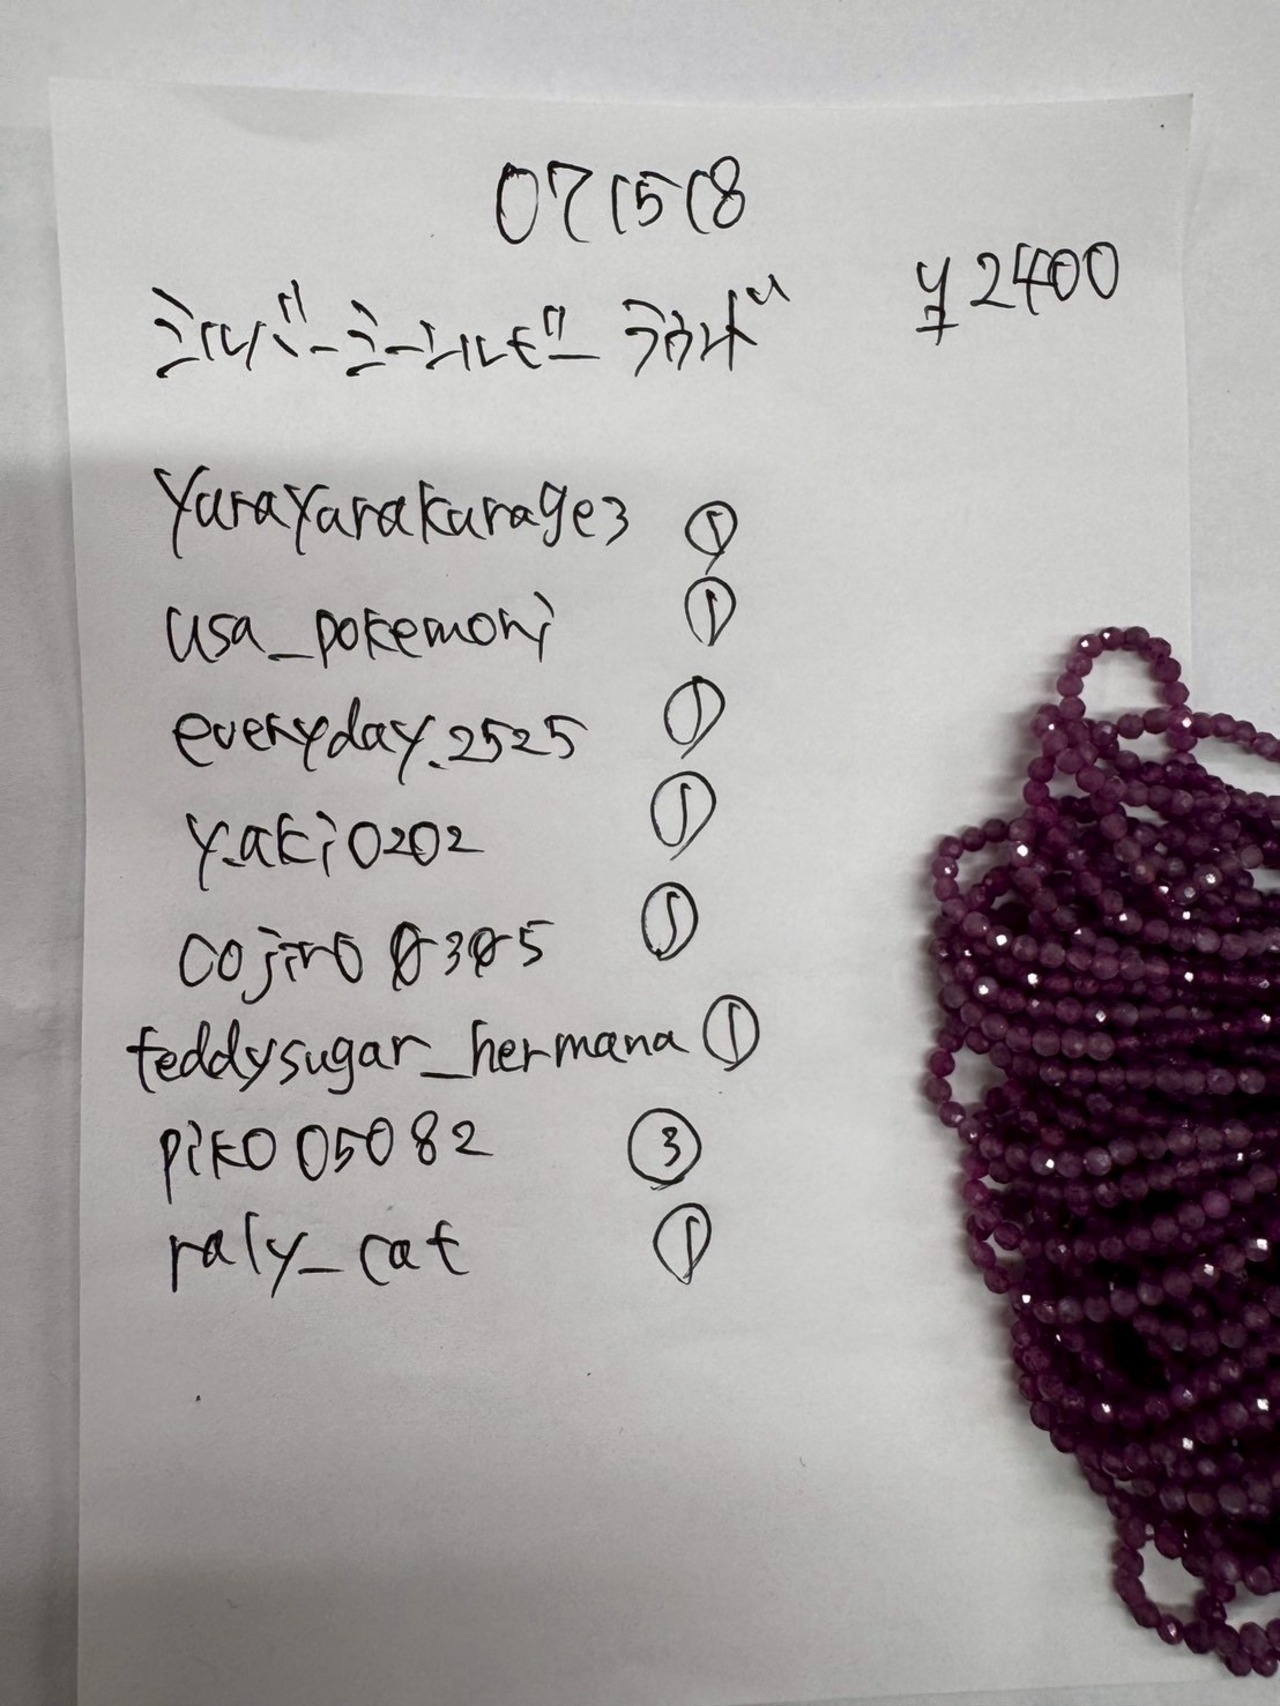 071518
¥2400
シルバーシーシルモー ラウンド
yurayurakurage3 ①
usa_pokemoni ①
everyday.2525 ①
y.aki0202 ①
cojiro0305 ①
teddysugar_hermana ①
piko05082 ③
raly_cat ①